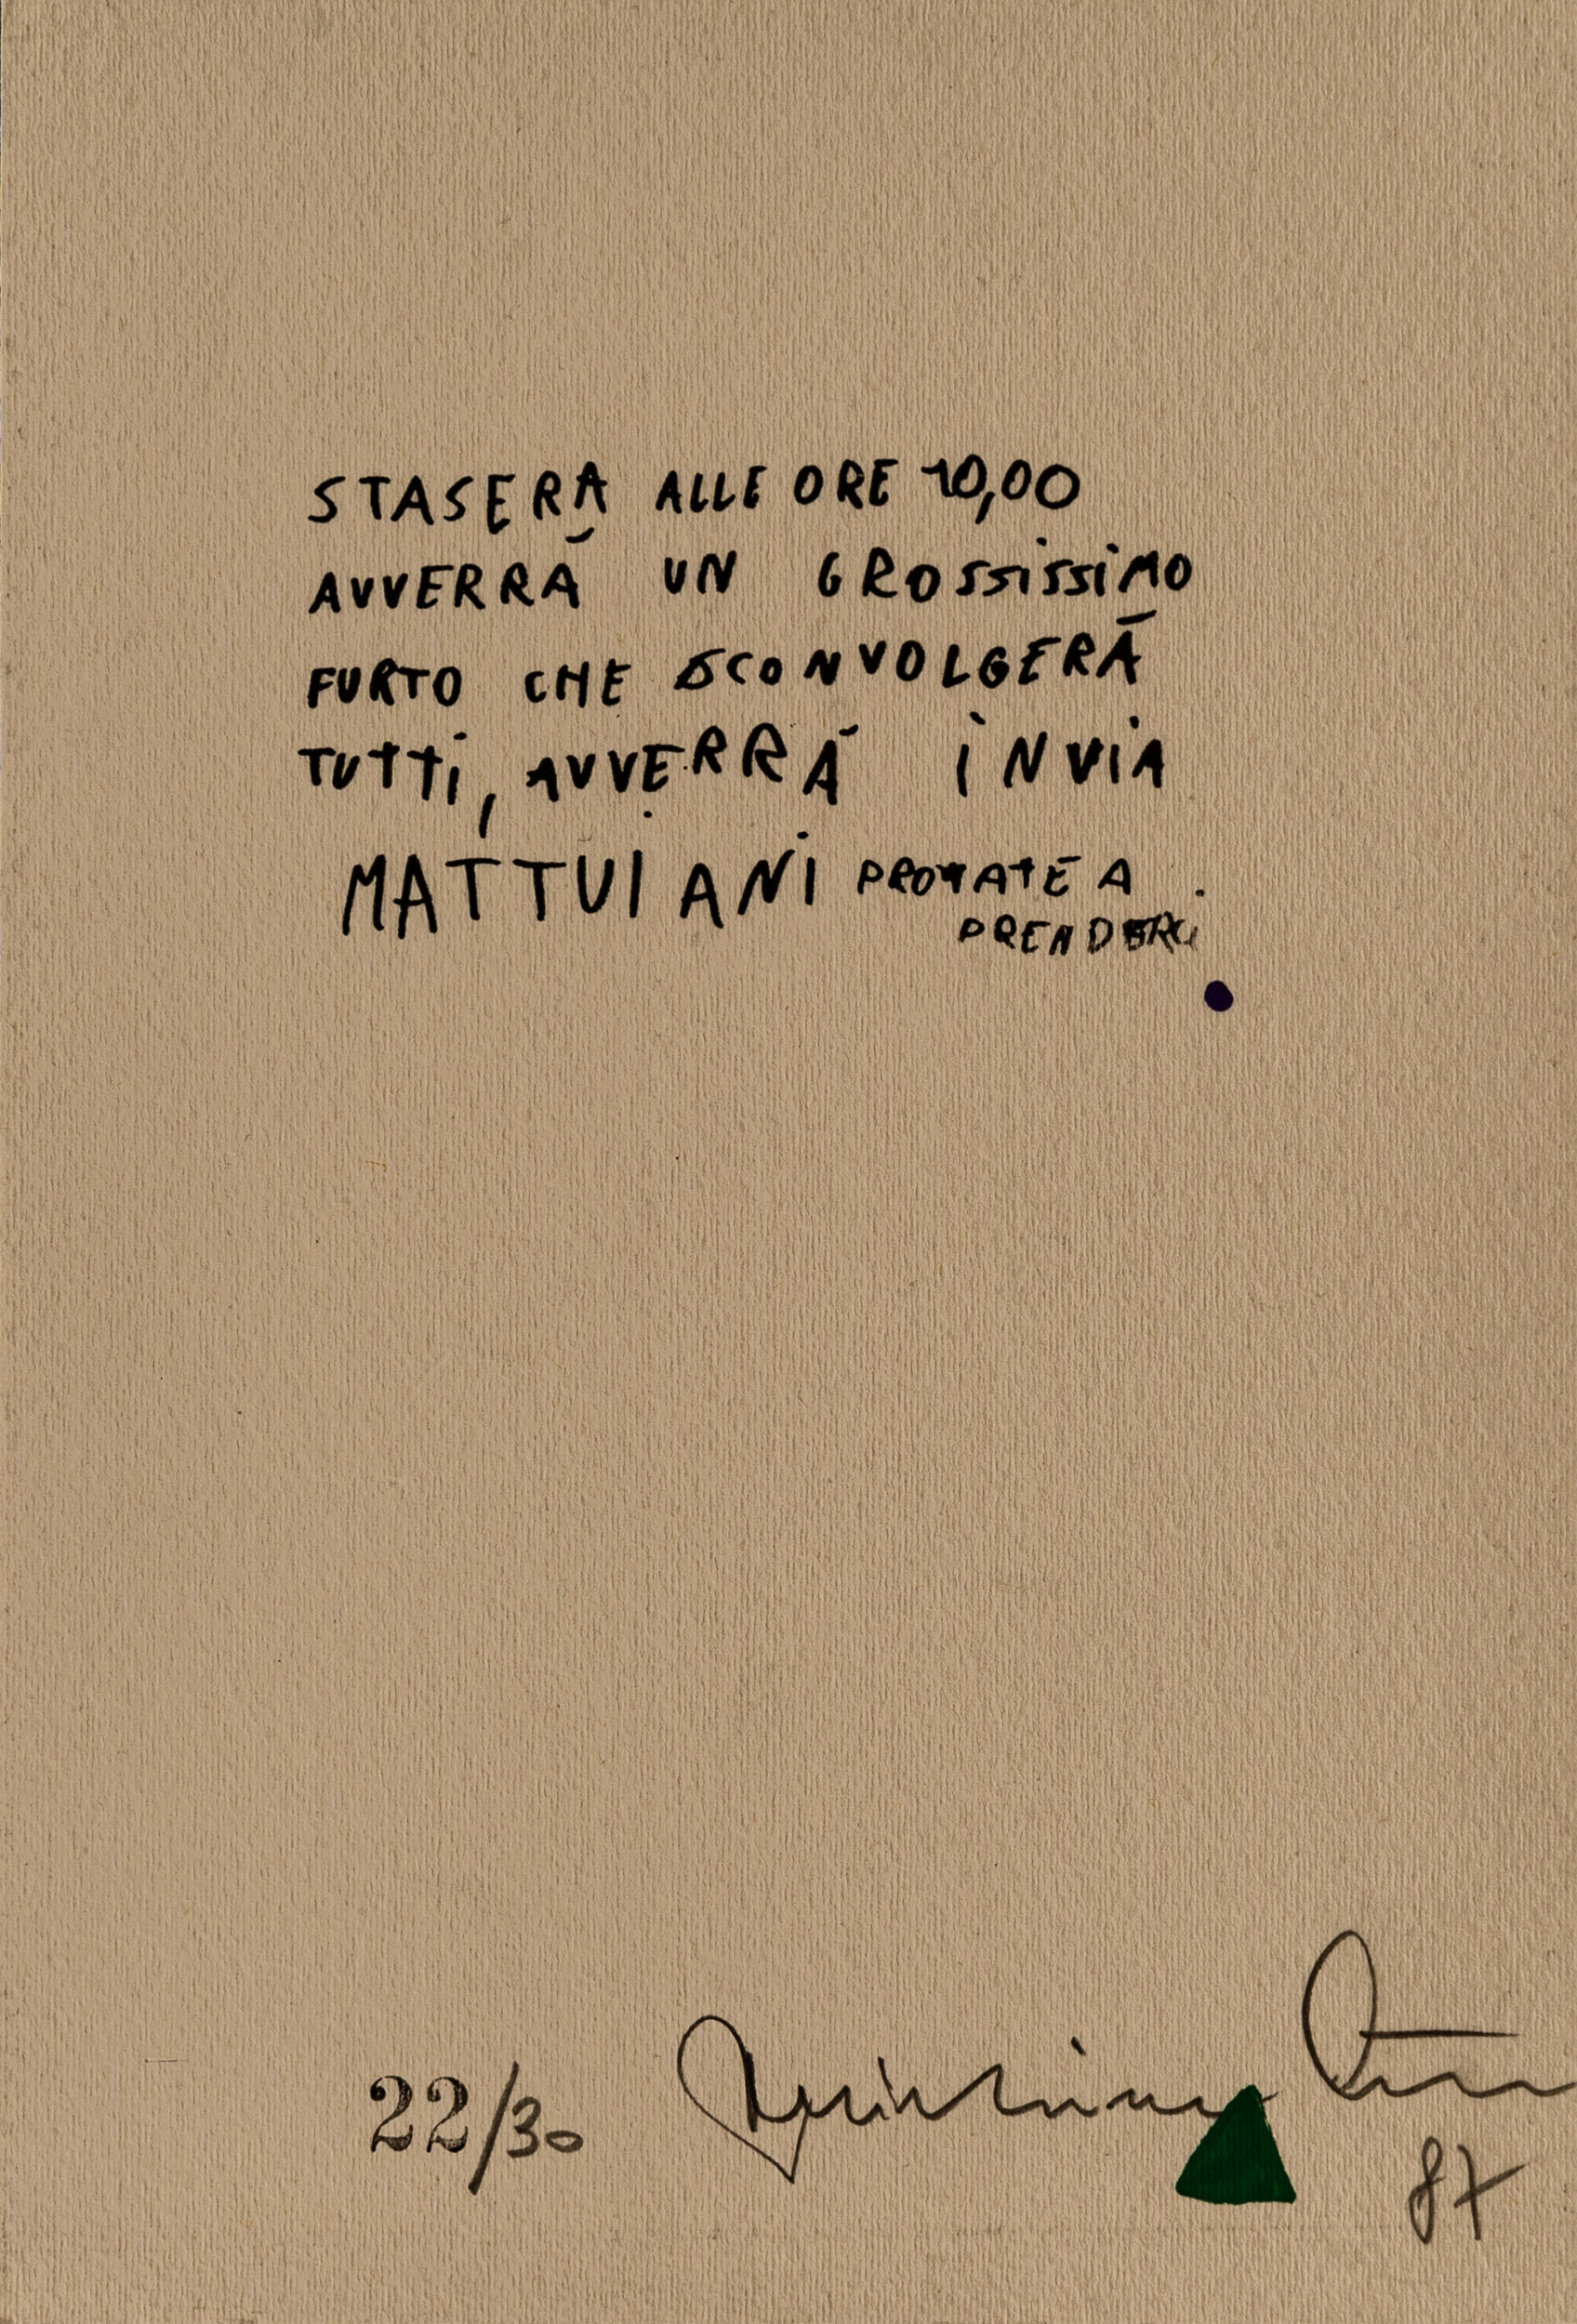 STASERA ALLE ORE 10,00
AVVERRÀ UN GROSSISSIMO
FURTO CHE SCONVOLGERÀ
TUTTI, AVVERRÀ IN VIA
MATTUIANI PROVATE A
PRENDERCI
22/30
87